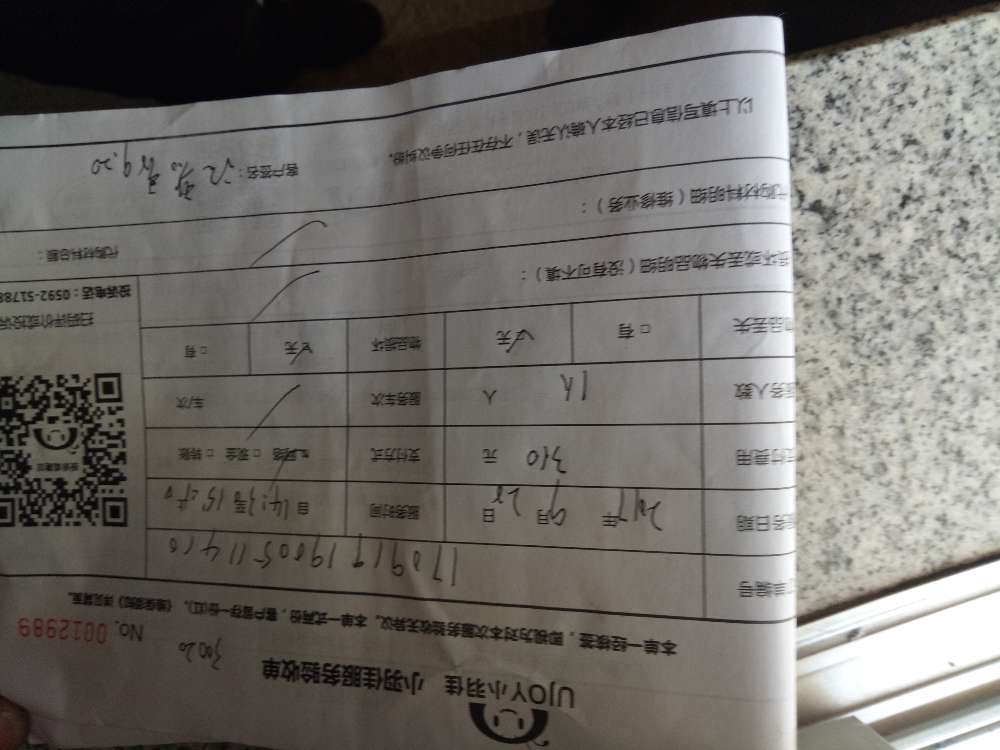 UJOY小羽佳 小羽佳服务验收单
30020
No. 0012989
本单一经核签，即视为对本次服务验收无异议。本单一式两份，客户留存一份(红)。
单编号 170919190051 1410
务日期 2017年 9月 20日 服务时间 自 14:
付费用 310 元 支付方式 网络 □ 现金 □ 转账
服务人数 1人 人 服务车次 车/次
物品丢失 □ 有 无 物品损坏 无 □ 有
扫码评价或投诉
投诉电话：0592-51788
坏或丢失物品明细（没有可不填）：
代购材料明细（维修业务）：
代购材料总额：
以上填写信息已经本人确认无误，不存在任何争议纠纷。
客户签名： 9.20